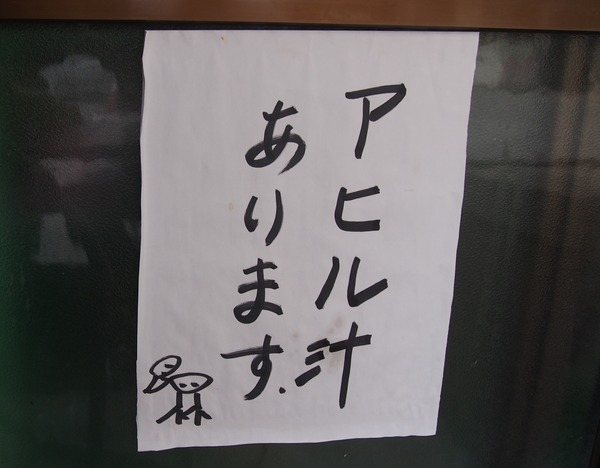 アヒル汁
あります.